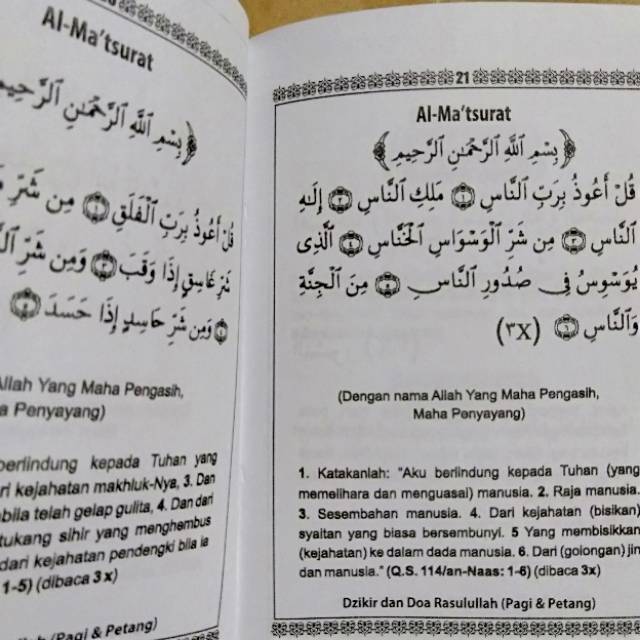 Al-Ma'tsurat
بِسْمِ ٱللَّهِ ٱلرَّحْمَٰنِ ٱلرَّحِيمِ
قُلْ أَعُوذُ بِرَبِّ ٱلْفَلَقِ ۝١ مِن شَرِّ
غَاسِقٍ إِذَا وَقَبَ ۝٣ وَمِن شَرِّ
۝٤ وَمِن شَرِّ حَاسِدٍ إِذَا حَسَدَ ۝٥
Allah Yang Maha Pengasih,
Penyayang)
berlindung kepada Tuhan yang
kejahatan makhluk-Nya, 3. Dan
telah gelap gulita, 4. Dan dari
tukang sihir yang menghembus
dari kejahatan pendengki bila ia
1-5) (dibaca 3 x)
(Pagi & Petang)
21
Al-Ma'tsurat
بِسْمِ ٱللَّهِ ٱلرَّحْمَٰنِ ٱلرَّحِيمِ
قُلْ أَعُوذُ بِرَبِّ ٱلنَّاسِ ۝١ مَلِكِ ٱلنَّاسِ ۝٢ إِلَٰهِ
ٱلنَّاسِ ۝٣ مِن شَرِّ ٱلْوَسْوَاسِ ٱلْخَنَّاسِ ۝٤ ٱلَّذِى
يُوَسْوِسُ فِى صُدُورِ ٱلنَّاسِ ۝٥ مِنَ ٱلْجِنَّةِ
وَٱلنَّاسِ ۝٦ (٣X)
(Dengan nama Allah Yang Maha Pengasih,
Maha Penyayang)
1. Katakanlah: "Aku berlindung kepada Tuhan (yang
memelihara dan menguasai) manusia. 2. Raja manusia.
3. Sesembahan manusia. 4. Dari kejahatan (bisikan)
syaitan yang biasa bersembunyi. 5 Yang membisikkan
(kejahatan) ke dalam dada manusia. 6. Dari (golongan) jin
dan manusia." (Q.S. 114/an-Naas: 1-6) (dibaca 3x)
Dzikir dan Doa Rasulullah (Pagi & Petang)